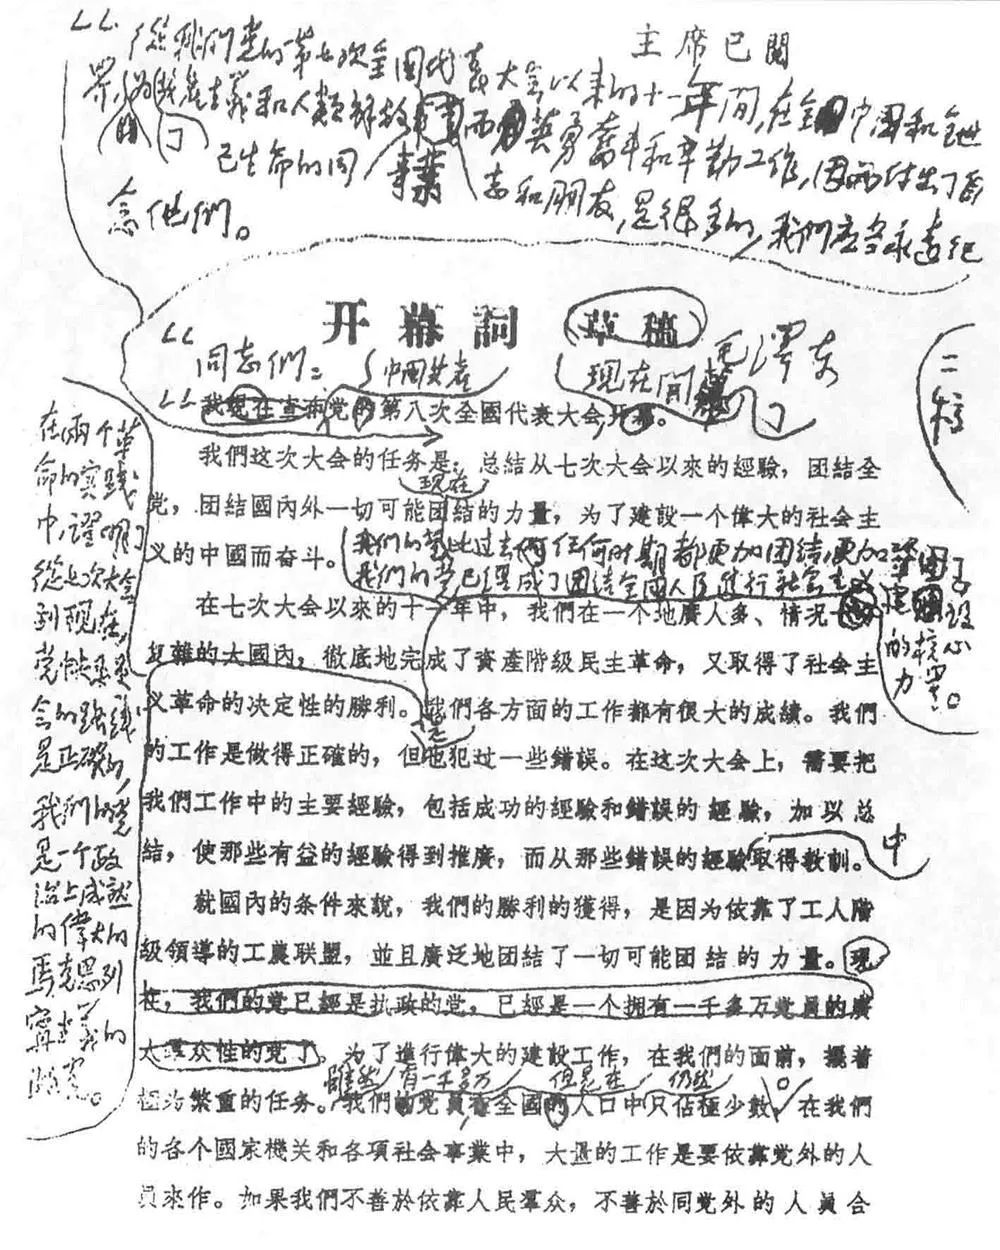 主席已閱
從我們党的第七次全国代表大会以来的十一年間,在全中国和全世
界,为共產主義和人類解放事業而英勇奮斗和辛勤工作,因而付出了自
己生命的同志和朋友,是很多的,我們应当永遠紀
念他們。
开幕詞 草稿
毛澤东
同志們:
中國共產
現在開幕了
二校
我現在宣布党的第八次全國代表大会开幕。
我們这次大会的任务是,总結从七次大会以來的經驗,团結全
党,团結國內外一切可能团結的力量,为了建設一个偉大的社会主
义的中國而奋斗。
現在
我們的党比过去任何时期都更加团結,更加鞏固了
我們的党已經成了团結全國人民進行社会主义建設
的核心力量。
在七次大会以來的十一年中,我們在一个地廣人多、情況
复雜的大國內,徹底地完成了資產階級民主革命,又取得了社会主
义革命的决定性的勝利。我們各方面的工作都有很大的成績。我們
的工作是做得正確的,但也犯过一些錯誤。在这次大会上,需要把
我們工作中的主要經驗,包括成功的經驗和錯誤的經驗,加以总
結,使那些有益的經驗得到推廣,而从那些錯誤的經驗取得教訓。
中
在兩个革
命的實踐
中,證明了
從七次大会
到現在,
党中央委員
会的路綫
是正確的,
我們的党
是一个政
治上成熟
的偉大的
馬克思列
寧主義的
政党。
就國內的条件來說,我們的勝利的獲得,是因为依靠了工人階
級領導的工農联盟,並且廣泛地团結了一切可能团結的力量。現
在,我們的党已經是执政的党,已經是一个拥有一千多万党員的廣
大羣众性的党了。为了進行偉大的建設工作,在我們的面前,擺着
極为繁重的任务。
雖然 有一千多万 但是在 仍然
我們的党員在全國的人口中只佔極少數。在我們
的各个國家機关和各項社会事業中,大量的工作是要依靠党外的人
員來作。如果我們不善於依靠人民羣众,不善於同党外的人員合